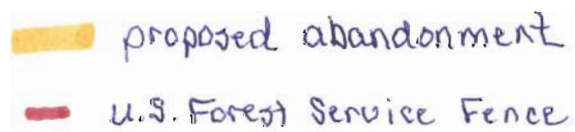 proposed abandonment
U.S. Forest Service Fence